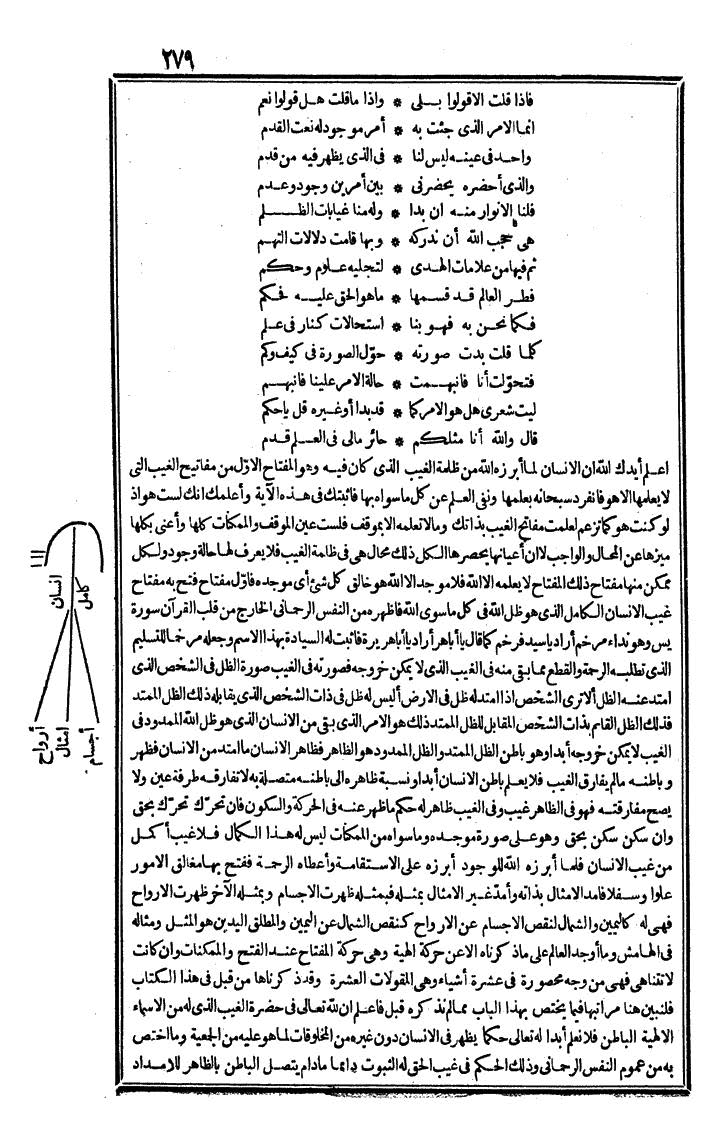 ٢٧٩
فاذا قلت الاقولوا بلى * واذا ماقلت هل قولوا نعم
انما الامر الذى جئت به * أمر موجود له نعت القدم
واحد فى عينه ليس لنا * فى الذى يظهر فيه من قدم
والذى أحضره يحضرنى * بين أمرين وجود وعدم
فلنا الانوار منه ان بدا * وله منا غيابات الظلم
هى حجب الله أن ندركه * وبها قامت دلالات التهم
ثم فيها من علامات الهدى * لتجليه علوم وحكم
فطر العالم قد قسمها * ماهو الحق عليه فحكم
فكما نحن به فهو بنا * استحالات كنار فى علم
كلما قلت بدت صورته * حوّل الصورة فى كيف وكم
فتحوّلت أنا فانبهمت * حالة الامر علينا فانبهم
ليت شعرى هل هو الامر كما * قد بدا أو غيره قل ياحكم
قال والله أنا مثلكم * حائر مالى فى العلم قدم
اعلم أيدك الله ان الانسان لما أبرزه الله من ظلمة الغيب الذى كان فيه وهو المفتاح الاوّل من مفاتيح الغيب التى
لا يعلمها الاهو فانفرد سبحانه بعلمها ونفى العلم عن كل ماسواه بها فاثبتك فى هذه الآية وأعلمك انك لست هو اذ
لو كنت هو كما تزعم لعلمت مفاتح الغيب بذاتك ومالا تعلمه الابموقف فلست عين الموقف والممكنات كلها وأعنى بكلها
ميزها عن المحال والواجب لا ان أعيانها يحصرها الكل ذلك محال هى فى ظلمة الغيب فلا يعرف لها حالة وجود ولكل
ممكن منها مفتاح ذلك المفتاح لا يعلمه الا الله فلا موجد الا الله هو خالق كل شئ أى موجده فاوّل مفتاح فتح به مفتاح
غيب الانسان الكامل الذى هو ظل الله فى كل ماسوى الله فاظهره من النفس الرحمانى الخارج من قلب القرآن سورة
يس وهو نداء مرخم أراد ياسيد فرخم كما قال يا أباهر أراد يا أباهريرة فاثبت له السيادة بهذا الاسم وجعله مرخما للتسليم
الذى تطلبه الرحمة والقطع مما بقى منه فى الغيب الذى لا يمكن خروجه فصورته فى الغيب صورة الظل فى الشخص الذى
امتد عنه الظل ألا ترى الشخص اذا امتد له ظل فى الارض أليس له ظل فى ذات الشخص الذى يقابله ذلك الظل الممتد
فذلك الظل القائم بذات الشخص المقابل للظل الممتد ذلك هو الامر الذى بقى من الانسان الذى هو ظل الله الممدود فى
الغيب لا يمكن خروجه أبدا وهو باطن الظل الممتد والظل الممدود هو الظاهر فظاهر الانسان ما امتد من الانسان فظهر
وباطنه مالم يفارق الغيب فلا يعلم باطن الانسان أبدا ونسبة ظاهره الى باطنه متصلة به لا تفارقه طرفة عين ولا
يصح مفارقته فهو فى الظاهر غيب وفى الغيب ظاهر له حكم ماظهر عنه فى الحركة والسكون فان تحرّك تحرّك بحق
وان سكن سكن بحق وهو على صورة موجده وماسواه من الممكنات ليس له هذا الكمال فلا غيب أكمل
من غيب الانسان فلما أبرزه الله للوجود أبرزه على الاستقامة وأعطاه الرحمة ففتح بها مغالق الامور
علوا وسفلا فامد الامثال بذاته وأمدّ غير الامثال بمثله فبمثله ظهرت الاجسام وبمثله الآخر ظهرت الارواح
فهى له كاليمين والشمال لنقص الاجسام عن الارواح كنقص الشمال عن اليمين والمطلق اليدين هو المثل ومثاله
فى الهامش وما أوجد العالم على ماذكرناه الا عن حركة الهية وهى حركة المفتاح عند الفتح والممكنات وان كانت
لا تتناهى فهى من وجه محصورة فى عشرة أشياء وهى المقولات العشرة وقد ذكرناها من قبل فى هذا الكتاب
فلنبين هنا مراتبها فيما يختص بهذا الباب ممالم نذكره قبل فاعلم ان لله تعالى فى حضرة الغيب الذى له من الاسماء
الالهية الباطن فلا نعلم أبدا له تعالى حكما يظهر فى الانسان دون غيره من المخلوقات لما هو عليه من الجمعية وما اختص
به من عموم النفس الرحمانى وذلك الحكم فى غيب الحق له الثبوت دائما مادام يتصل الباطن بالظاهر للامداد
انسان
كامل
أرواح
امثال
أجسام